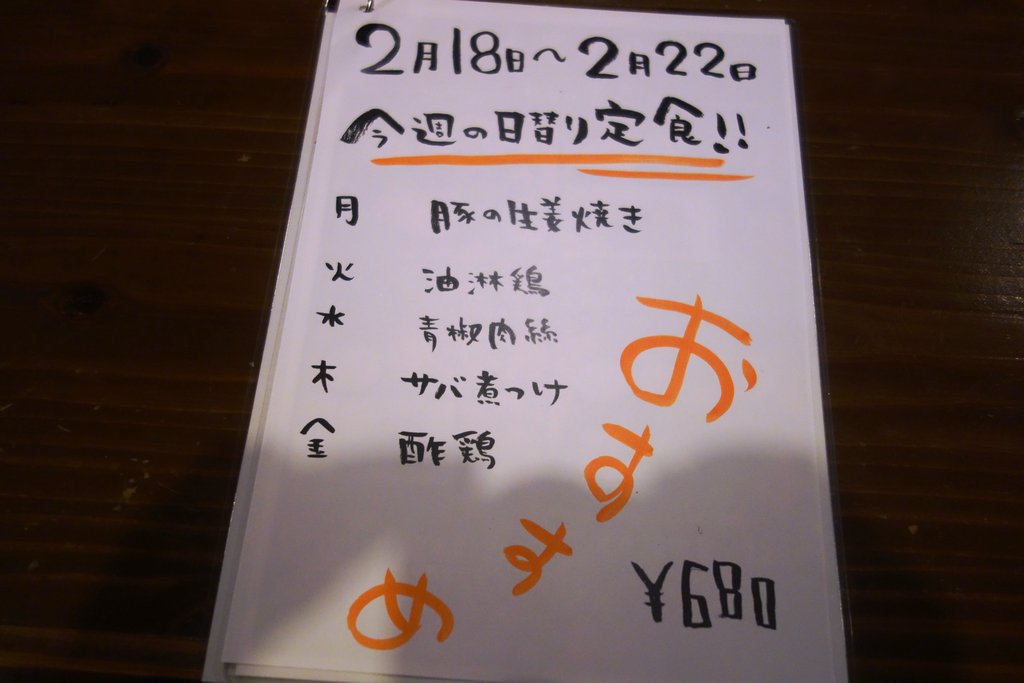 2月18日～2月22日
今週の日替り定食!!
月 豚の生姜焼き
火 油淋鶏
水 青椒肉絲
木 サバ煮つけ
金 酢鶏
おすすめ
¥680